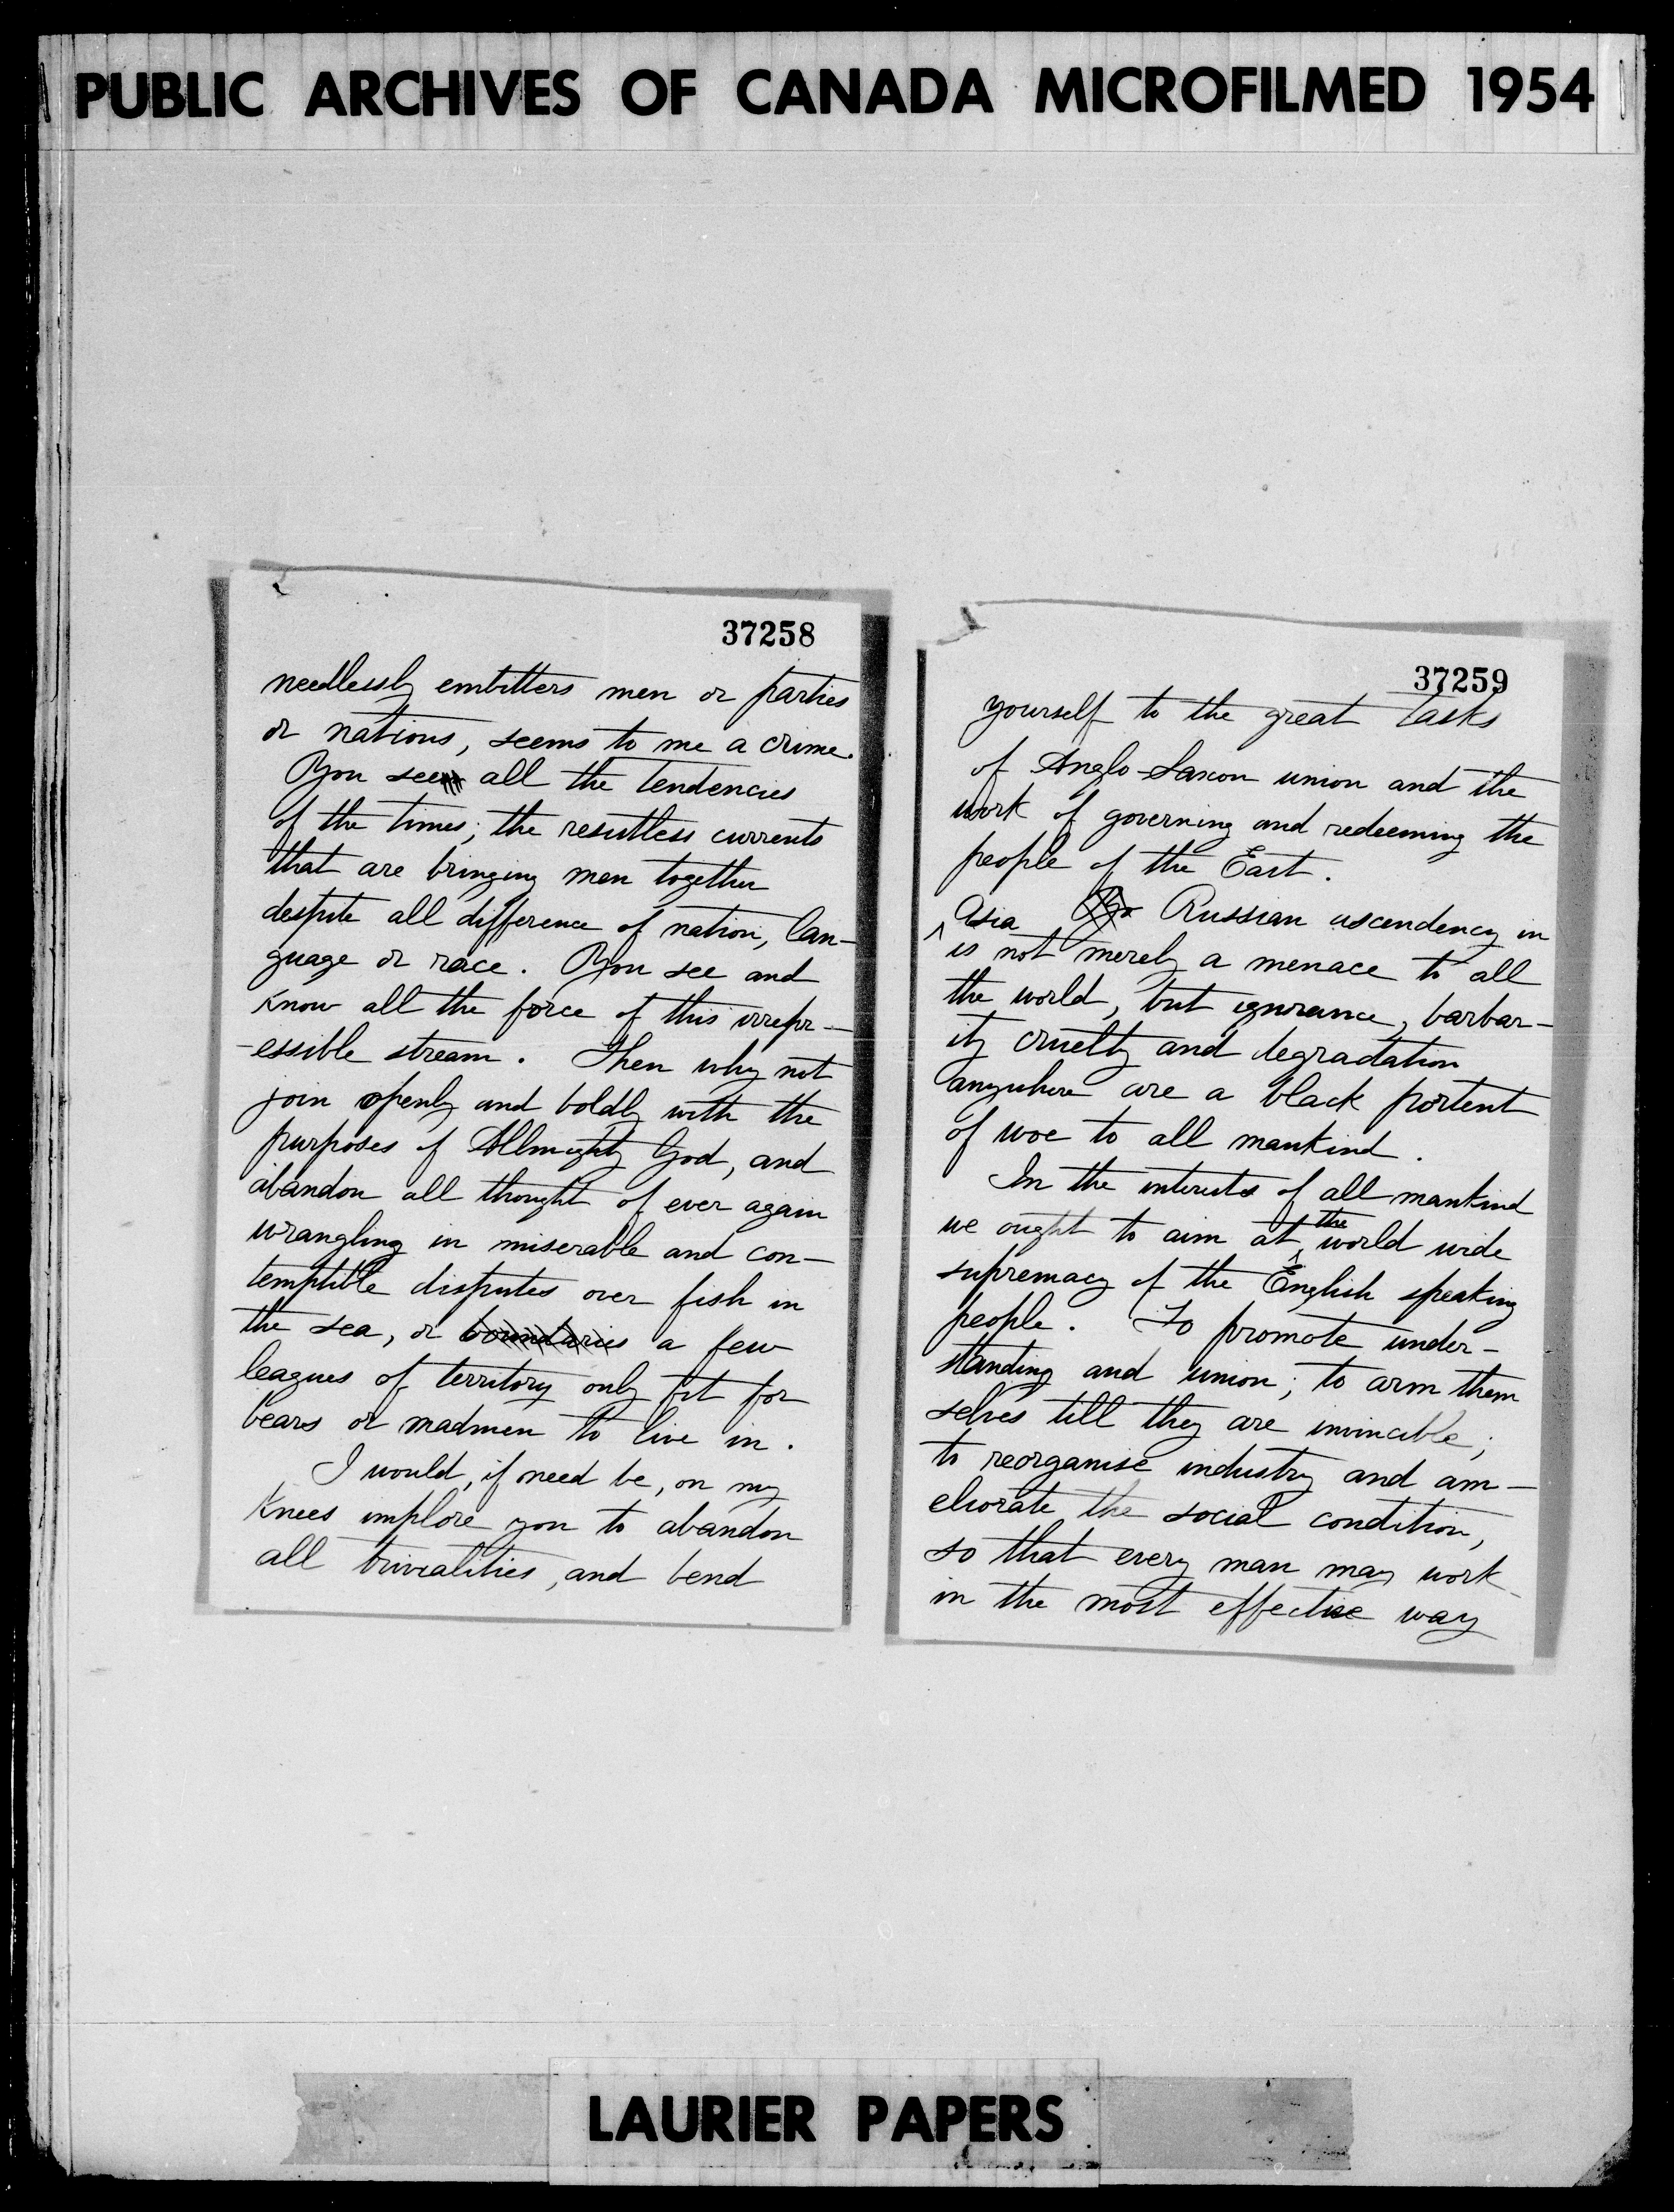 PUBLIC ARCHIVES OF CANADA MICROFILMED 1954
37258
needlessly embitters men or parties
or nations, seems to me a crime.
You see all the tendencies
of the times; the resistless currents
that are bringing men together
despite all difference of nation, lan-
guage or race. You see and
know all the force of this irrepr-
-essible stream. Then why not
join openly and boldly with the
purposes of Allmighty God, and
abandon all thought of ever again
wrangling in miserable and con-
temptible disputes over fish in
the sea, or boundaries a few
leagues of territory only fit for
bears or madmen to live in.
I would, if need be, on my
knees implore you to abandon
all trivialities, and bend
37259
yourself to the great tasks
of Anglo-Saxon union and the
work of governing and redeeming the
people of the East.
Russian ascendency in
^ Asia
is not merely a menace to all
the world, but ignorance, barbar-
ity cruelty and degradation
anywhere are a black portent
of woe to all mankind.
In the interests of all mankind
we ought to aim at ^the world wide
supremacy of the English speaking
people. To promote under-
standing and union; to arm them
selves till they are invincible;
to reorganise industry and am-
eliorate the social condition,
so that every man may work
in the most effective way
LAURIER PAPERS